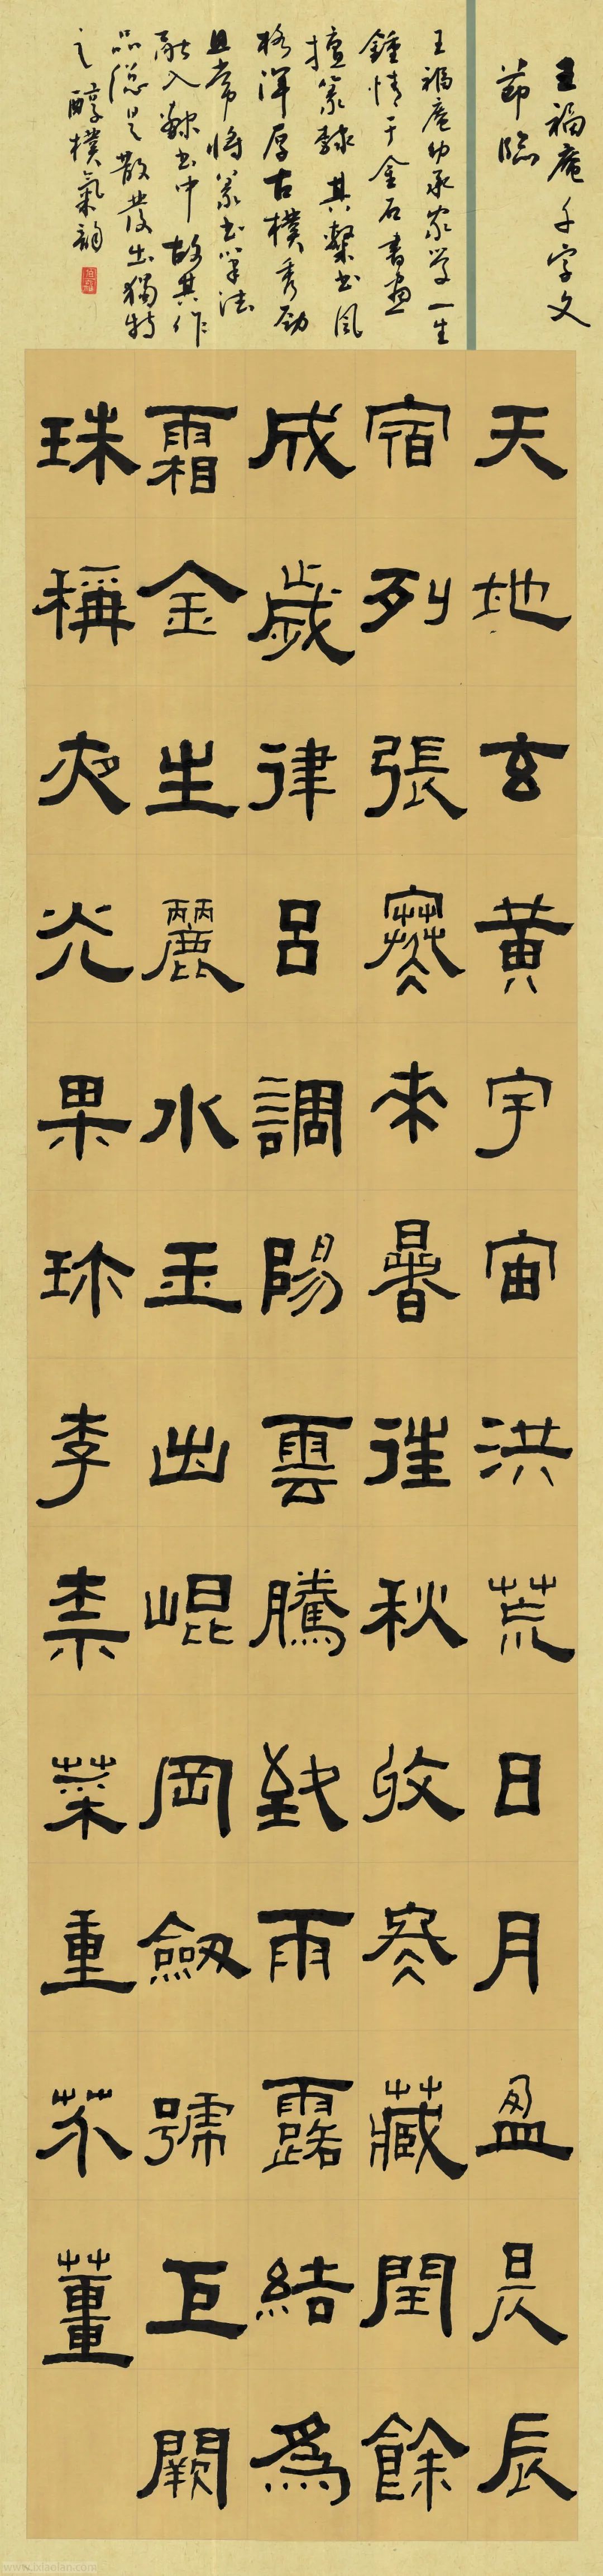 王福庵千字文
節臨
王福庵幼承家学一生
鍾情于金石書畫
擅篆隸其隸书風
格渾厚古樸秀勁
且常將篆书筆法
融入隸书中故其作
品總是散發出獨特
之醇樸氣韵
天地玄黄宇宙洪荒日月盈昃辰
宿列張寒来暑往秋收冬藏閏餘
成歲律呂調陽雲騰致雨露結爲
霜金生麗水玉出崐岡劒號巨闕
珠稱夜光果珍李柰菜重芥薑
www.ixiaolan.com